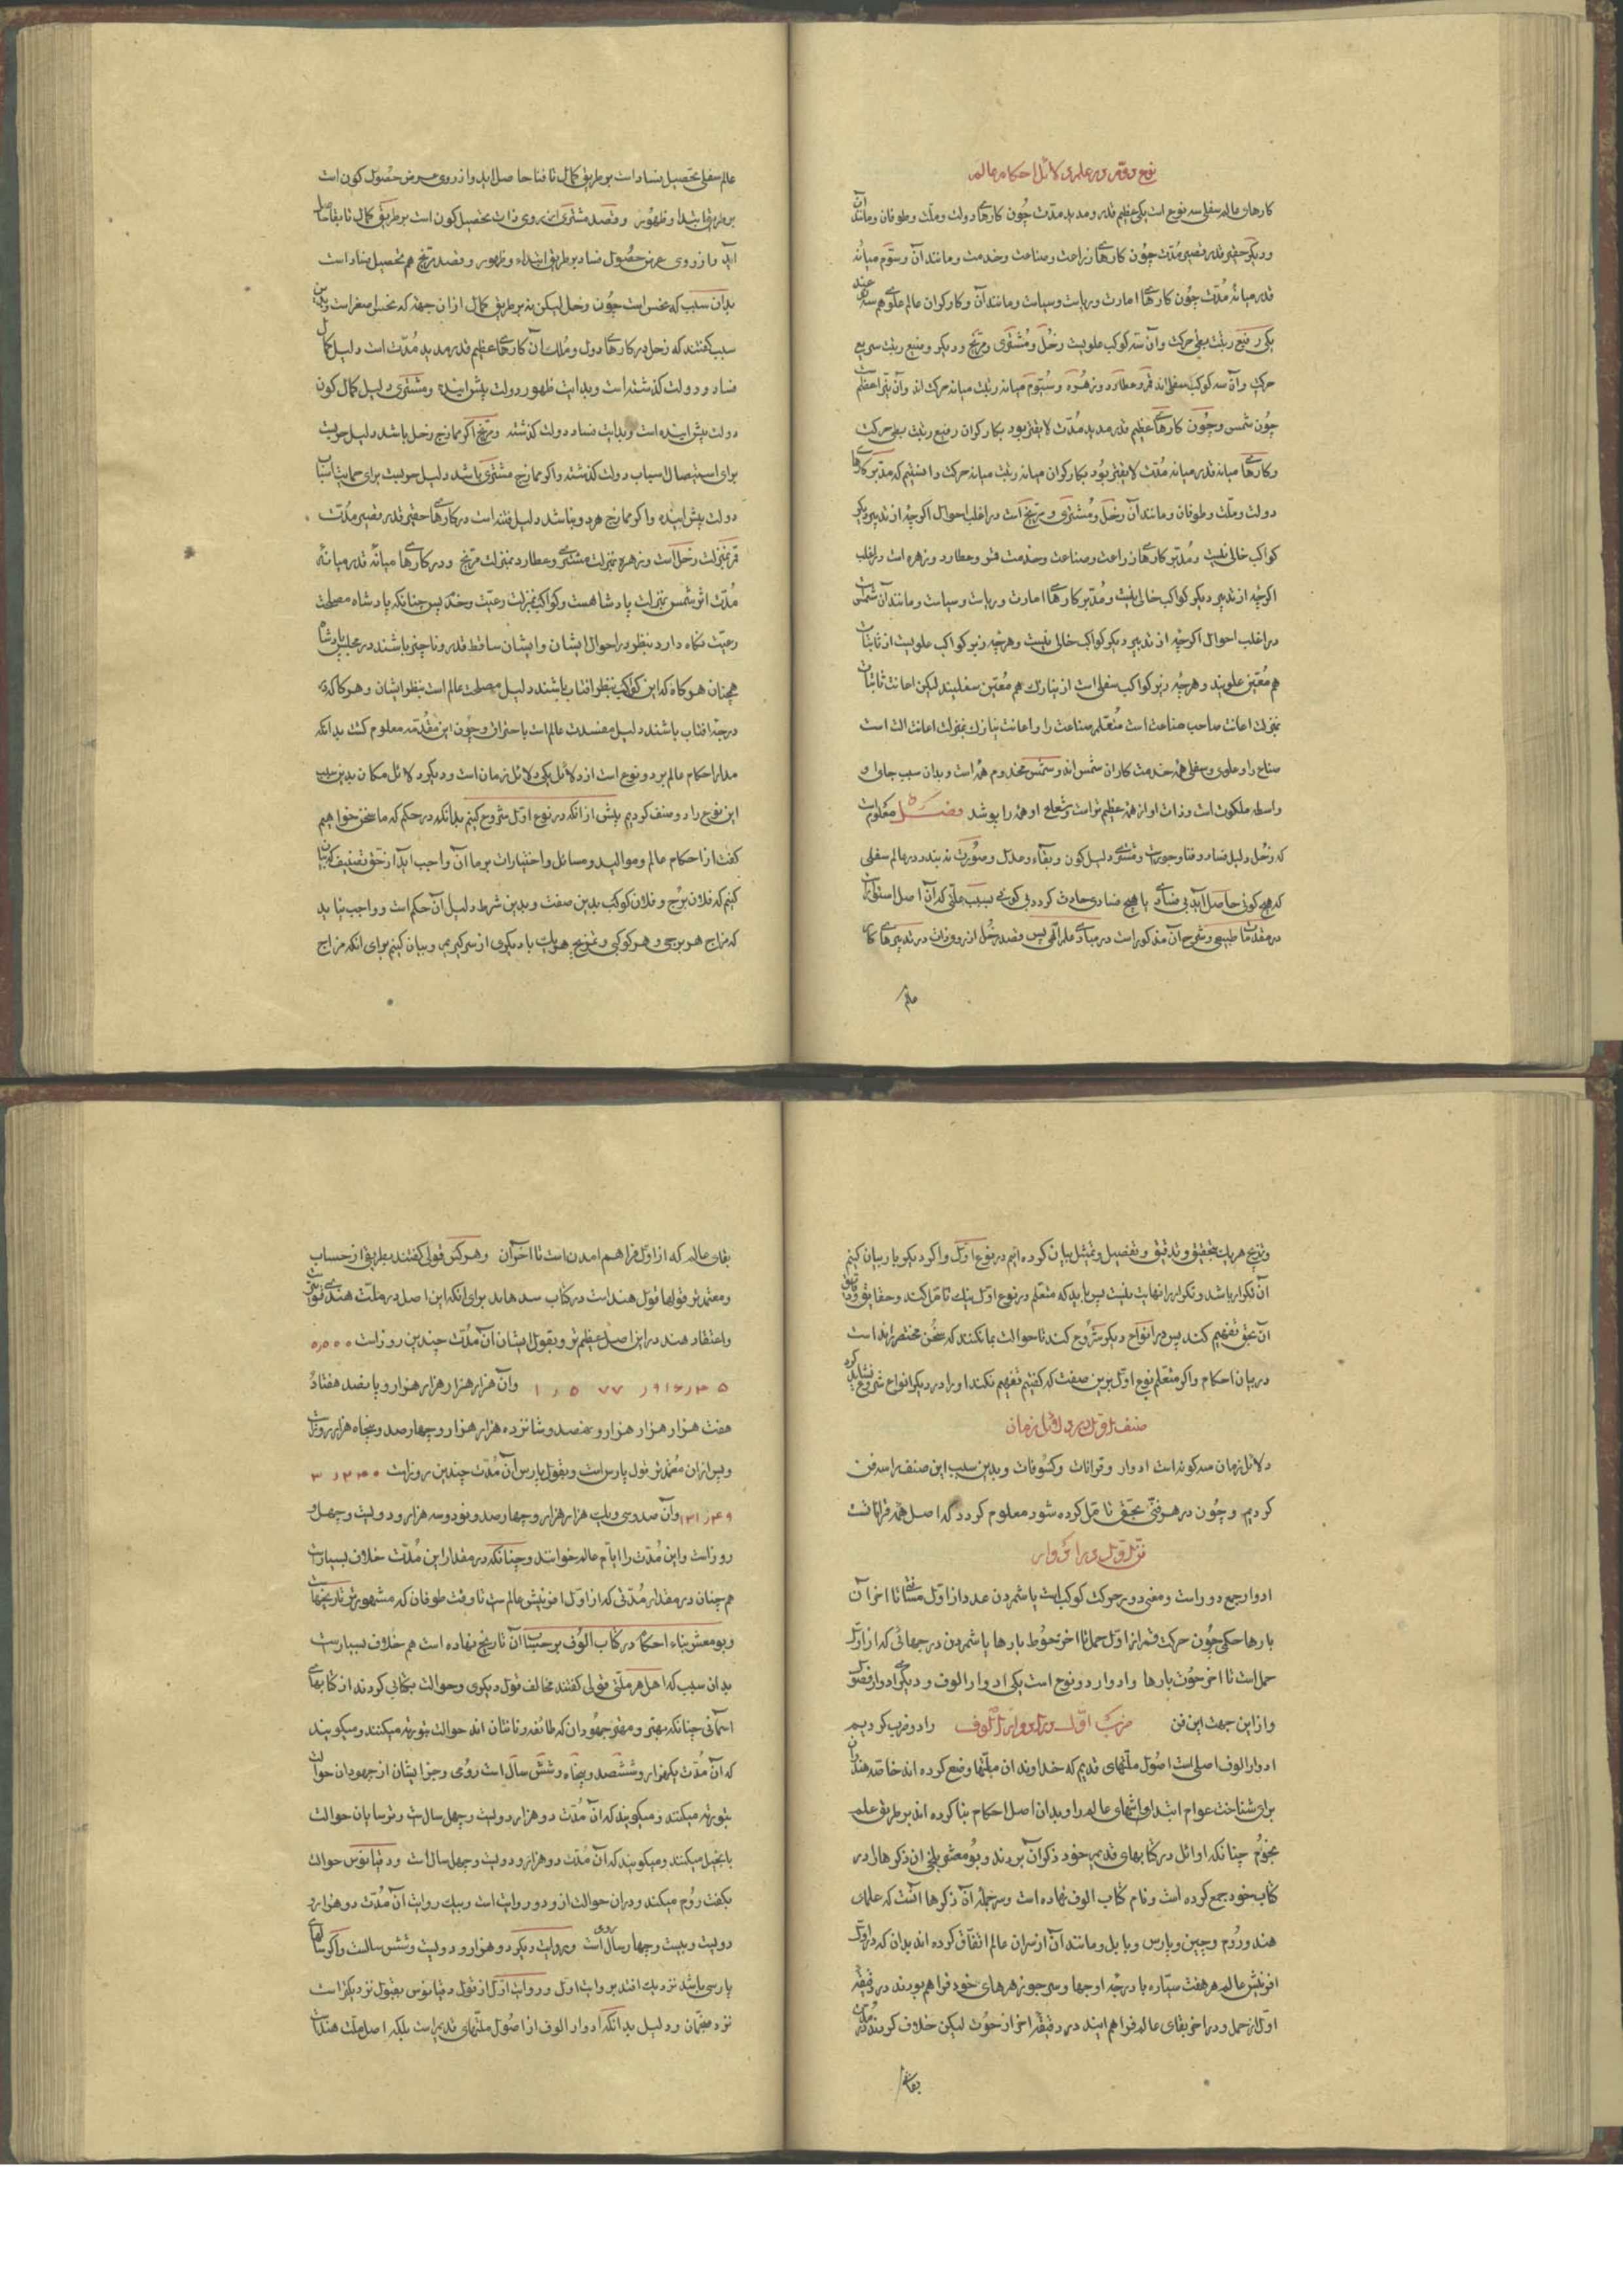 نوع دوم در علم دلائل احکام عالم
کارهای عالم سفلی سه نوع است یکی عظیم قدر و مدید مدت چون کارهای دولت و ملت و طوفان و مانند آن
و دیگر حقیر قدر قصیر مدت چون کارهای زراعت و صناعت و خدمت و مانند آن و سوم میانه
قدر میانه مدت چون کارهای امارت و ریاست و سیاست و مانند آن و کارکران عالم علوی هم سه
یکی رفیع رتبت بطی حرکت و آن سه کوکب علویست زحل و مشتری و مریخ و دیگر وضیع رتبت سریع
حرکت و آن سه کوکب سفلی اند قمر و عطارد و زهره و سیوم میانه رتبت میانه حرکت اند و آن نیر اعظمست
چون شمس و چون کارهای عظیم قدر مدید مدت لایق بود بکارکران رفیع رتبت بطی حرکت
و کارهای میانه قدر میانه مدت لایق بود بکارکران میانه رتبت میانه حرکت دانستیم که مدبر کارهای
دولت و ملت و طوفان و مانند آن زحل و مشتری و مریخ است در اغلب احوال اگرچه از تدبیر دیگر
کواکب خالی نیست و مدبر کارهای زراعت و صناعت و خدمت قمر و عطارد و زهره است در اغلب
اگرچه از تدبیر دیگر کواکب خالی نیست و مدبر کارهای امارت و ریاست و سیاست و مانند آن شمس است
در اغلب احوال اگرچه از تدبیر دیگر کواکب خالی نیست و هرچه زبر کواکب علویست از ثابتات
هم معین علویند و هرچه زیر کواکب سفلی است از نیازک هم معین سفلیند لیکن اعانت ثابتات
بمنزلت اعانت صاحب صناعت است متعلم صناعت را و اعانت نیازک بمنزلت اعانت الت است
صناع را و علوی و سفلی همه خدمت کاران شمس اند و شمس مخدوم همه است و بدان سبب جای او
واسطه ملکوت است و ذات او از همه عظیم تر است و شعاع او همه را پوشد فصل معلوم است
که زحل دلیل فساد و فنا و جور است و مشتری دلیل کون و بقاء و عدل و صورت نه بندد در عالم سفلی
که هیچ کونی حاصل آید بی فسادی یا هیچ فسادی حادث کردد بی کونی بسبب علتی که آن اصل اسفل
در مقدمات طبیعی و شرح آن مذکور است در مبادی علم الهی پس قصد زحل از روی ذات در تدبیرهای کارهای
عالم
عالم سفلی تحصیل فساد است بر طریق کمال تا فنا حاصل اید و از روی عرض حصول کون است
بر طریق ابتدا و ظهور و قصد مشتری از روی ذات تحصیل کون است بر طریق کمال تا بقا حاصل
آید و از روی عرض حصول فساد بر طریق ابتداء و ظهور و قصد مریخ هم تحصیل فساد است
بدان سبب که نحس است چون زحل لیکن نه بر طریق کمال از ان جهة که نحس اصغر است و بدین
سبب کفتند که زحل در کارهای دول و ملل آن کارهای عظیم قدر مدید مدت است دلیل کمال
فساد دولت کذشته است و بدایت ظهور دولت پیش اینده و مشتری دلیل کمال کون
دولت پیش اینده است و بدایت فساد دولت کذشته و مریخ اگر ممازج زحل باشد دلیل حربست
برای استیصال اسباب دولت کذشته و اگر ممازج مشتری باشد دلیل حربست برای حمایت اسباب
دولت پیش اینده و اگر ممازج هردو باشد دلیل فتنه است در کارهای حقیر قدر قصیر مدت
قمر بمنزلت زحل است و زهره بمنزلت مشتری و عطارد بمنزلت مریخ و در کارهای میانه قدر میانه
مدت اثر شمس بمنزلت پادشاهست و کواکب بمنزلت رعیت و خدم پس چنانکه پادشاه مصلحت
رعیت نگاه دارد بنظر در احوال ایشان و ایشان ساقط قدر و ناچیز باشند در مجلس پادشاه
همچنان هرگاه که این کواکب بنظر افتاب باشند دلیل مصلحت عالم است بنظر ایشان و هرگاه که در
درجه افتاب باشند دلیل مفسدت عالم است باحتراق و چون این مقدمه معلوم کشت بدانکه
مدار احکام عالم بر دو نوع است از دلائل یکی دلائل زمان است و دیگر دلائل مکان بدین سبب
این نوع را دو صنف کردیم پیش از انکه در نوع اول شروع کنیم بدانکه در حکم که ما سخن خواهیم
کفت از احکام عالم و موالید و مسائل و اختیارات بر ما آن واجب اید از حق تصنیف که بیان
کنیم که فلان برج و فلان کوکب بدین صفت و بدین شرط دلیل آن حکم است و واجب نیاید
که مزاج هر برجی و هر کوکبی و تمزیج هر یک با دیگری از سر کیریم و بیان کنیم برای انکه مزاج
و تمزیج هریک بتحقیق و تدقیق و تفصیل و تمثیل بیان کرده ایم در نوع اول و اگر دیگر باره بیان کنیم
آن تکرار باشد و تکرار را نهایت نیست پس باید که متعلم در نوع اول نیک تامل کند و حقایق و دقایق
آن بحق تفهیم کند پس در انواع دیگر شروع کند تا حوالت بما نکند که سخن مختصر رانده است
در بیان احکام و اگر متعلم نوع اول برین صفت که کفتیم تفهم نکند او را در دیگر انواع شروع نشاید کرد
صنف اول در دلائل زمان
دلائل زمان سه کونه است ادوار و قرانات و کسوفات و بدین سبب این صنف را سه فن
کردیم و چون در هر فنی بحق تامل کرده شود معلوم کردد که اصل همه قراناتست
فن اول در ادوار
ادوار جمع دور است و معنی دور حرکت کوکبست یا شمردن عدد از اول مسافتی تا اخر آن
بارها حکمی چون حرکت قمر از اول حمل تا اخر حوت بارها یا شمردن درجهائی که از اول
حمل است تا اخر حوت بارها و ادوار دو نوع است یکی ادوار الوف و دیگری ادوار فصول
و از این جهت این فن را دو ضرب کردیم ضرب اول در ادوار الوف
ادوار الوف اصلی است اصول ملتهای قدیم که خداوندان ملتها وضع کرده اند خاصه هندوان
برای شناخت عوام ابتدا و انتهای عالم را و بدان اصل احکام بنا کرده اند بر طریق علم
نجوم چنانکه اوائل در کتابهای قدیم خود ذکر آن بردند و بومعشر بلخی ان ذکرها را در
کتاب خود جمع کرده است و نام کتاب الوف نهاده است و سر جمله آن ذکرها آنست که علمای
هند و روم و چین و پارس و بابل و مانند آن از سران عالم اتفاق کرده اند بدان که در اول
افرینش عالم هر هفت ستاره با درجه اوجها و سر جوزهرهای خود فراهم بودند در دقیقه
اول از حمل و در اخر بقای عالم فراهم ایند در دقیقه اخر از حوت لیکن خلاف کردند در مدت
بقای
بقای عالم که از اول فراهم امدن است تا اخر آن و هر کس قولی کفتند بطریق از حساب
و معتمدتر قولها قول هند است در کتاب سندهند برای انکه این اصل در ملت هند قویست
و اعتقاد هند در این اصل عظیم تر و بقول ایشان آن مدت چندین روز است
وآن هزار هزار هزار هزار و پانصد هفتاد
هفت هزار هزار هزار و نهصد و شانزده هزار هزار و چهارصد و پنجاه هزار روز است
و پس از ان معتمدتر قول پارس است و بقول پارس آن مدت چندین روز است
وآن صد و سی و یک هزار هزار و چهارصد و نود و سه هزار و دویست و چهل
روز است و این مدت را ایام عالم خوانند و چنانکه در مقدار این مدت خلاف بسیار است
هم چنان در مقدار مدتی که از اول افرینش عالمست تا وقت طوفان که مشهورترین تاریخهاست
و بومعشر بناء احکام در کتاب الوف بر حساب آن تاریخ نهاده است هم خلاف بسیار است
بدان سبب که اهل هر ملتی قولی کفتند مخالف قول دیگری و حوالت بکتابی کردند از کتابهای
اسمانی چنانکه مهتر و مقر جهودان که طائفه دانایان اند حوالت بتوریة میکنند و میکویند
که آن مدت یکهزار و ششصد و پنجاه و شش سال است رومی و جز ایشان از جهودان حوالت
بتوریة میکنند و میکویند که آن مدت دو هزار دویست و چهل سال است و ترسایان حوالت
بانجیل میکنند و میکویند که آن مدت دو هزار و دویست و چهل سال است و دقیانوس حوالت
بکفت روم میکند و در ان حوالت ازو دو روایت است و بیک روایت آن مدت دو هزار و
دویست و بیست و چهار سال است و بروایت دیگر دو هزار و دویست و شش سالست و اگر سالهای
پارسی باشد نزدیک افتد بروایت اول و روایت اول از قول دقیانوس بقبول نزدیکتر است
نزد منجمان و دلیل بدانکه ادوار الوف از اصول ملتهای قدیم است بلکه اصل ملت هند است